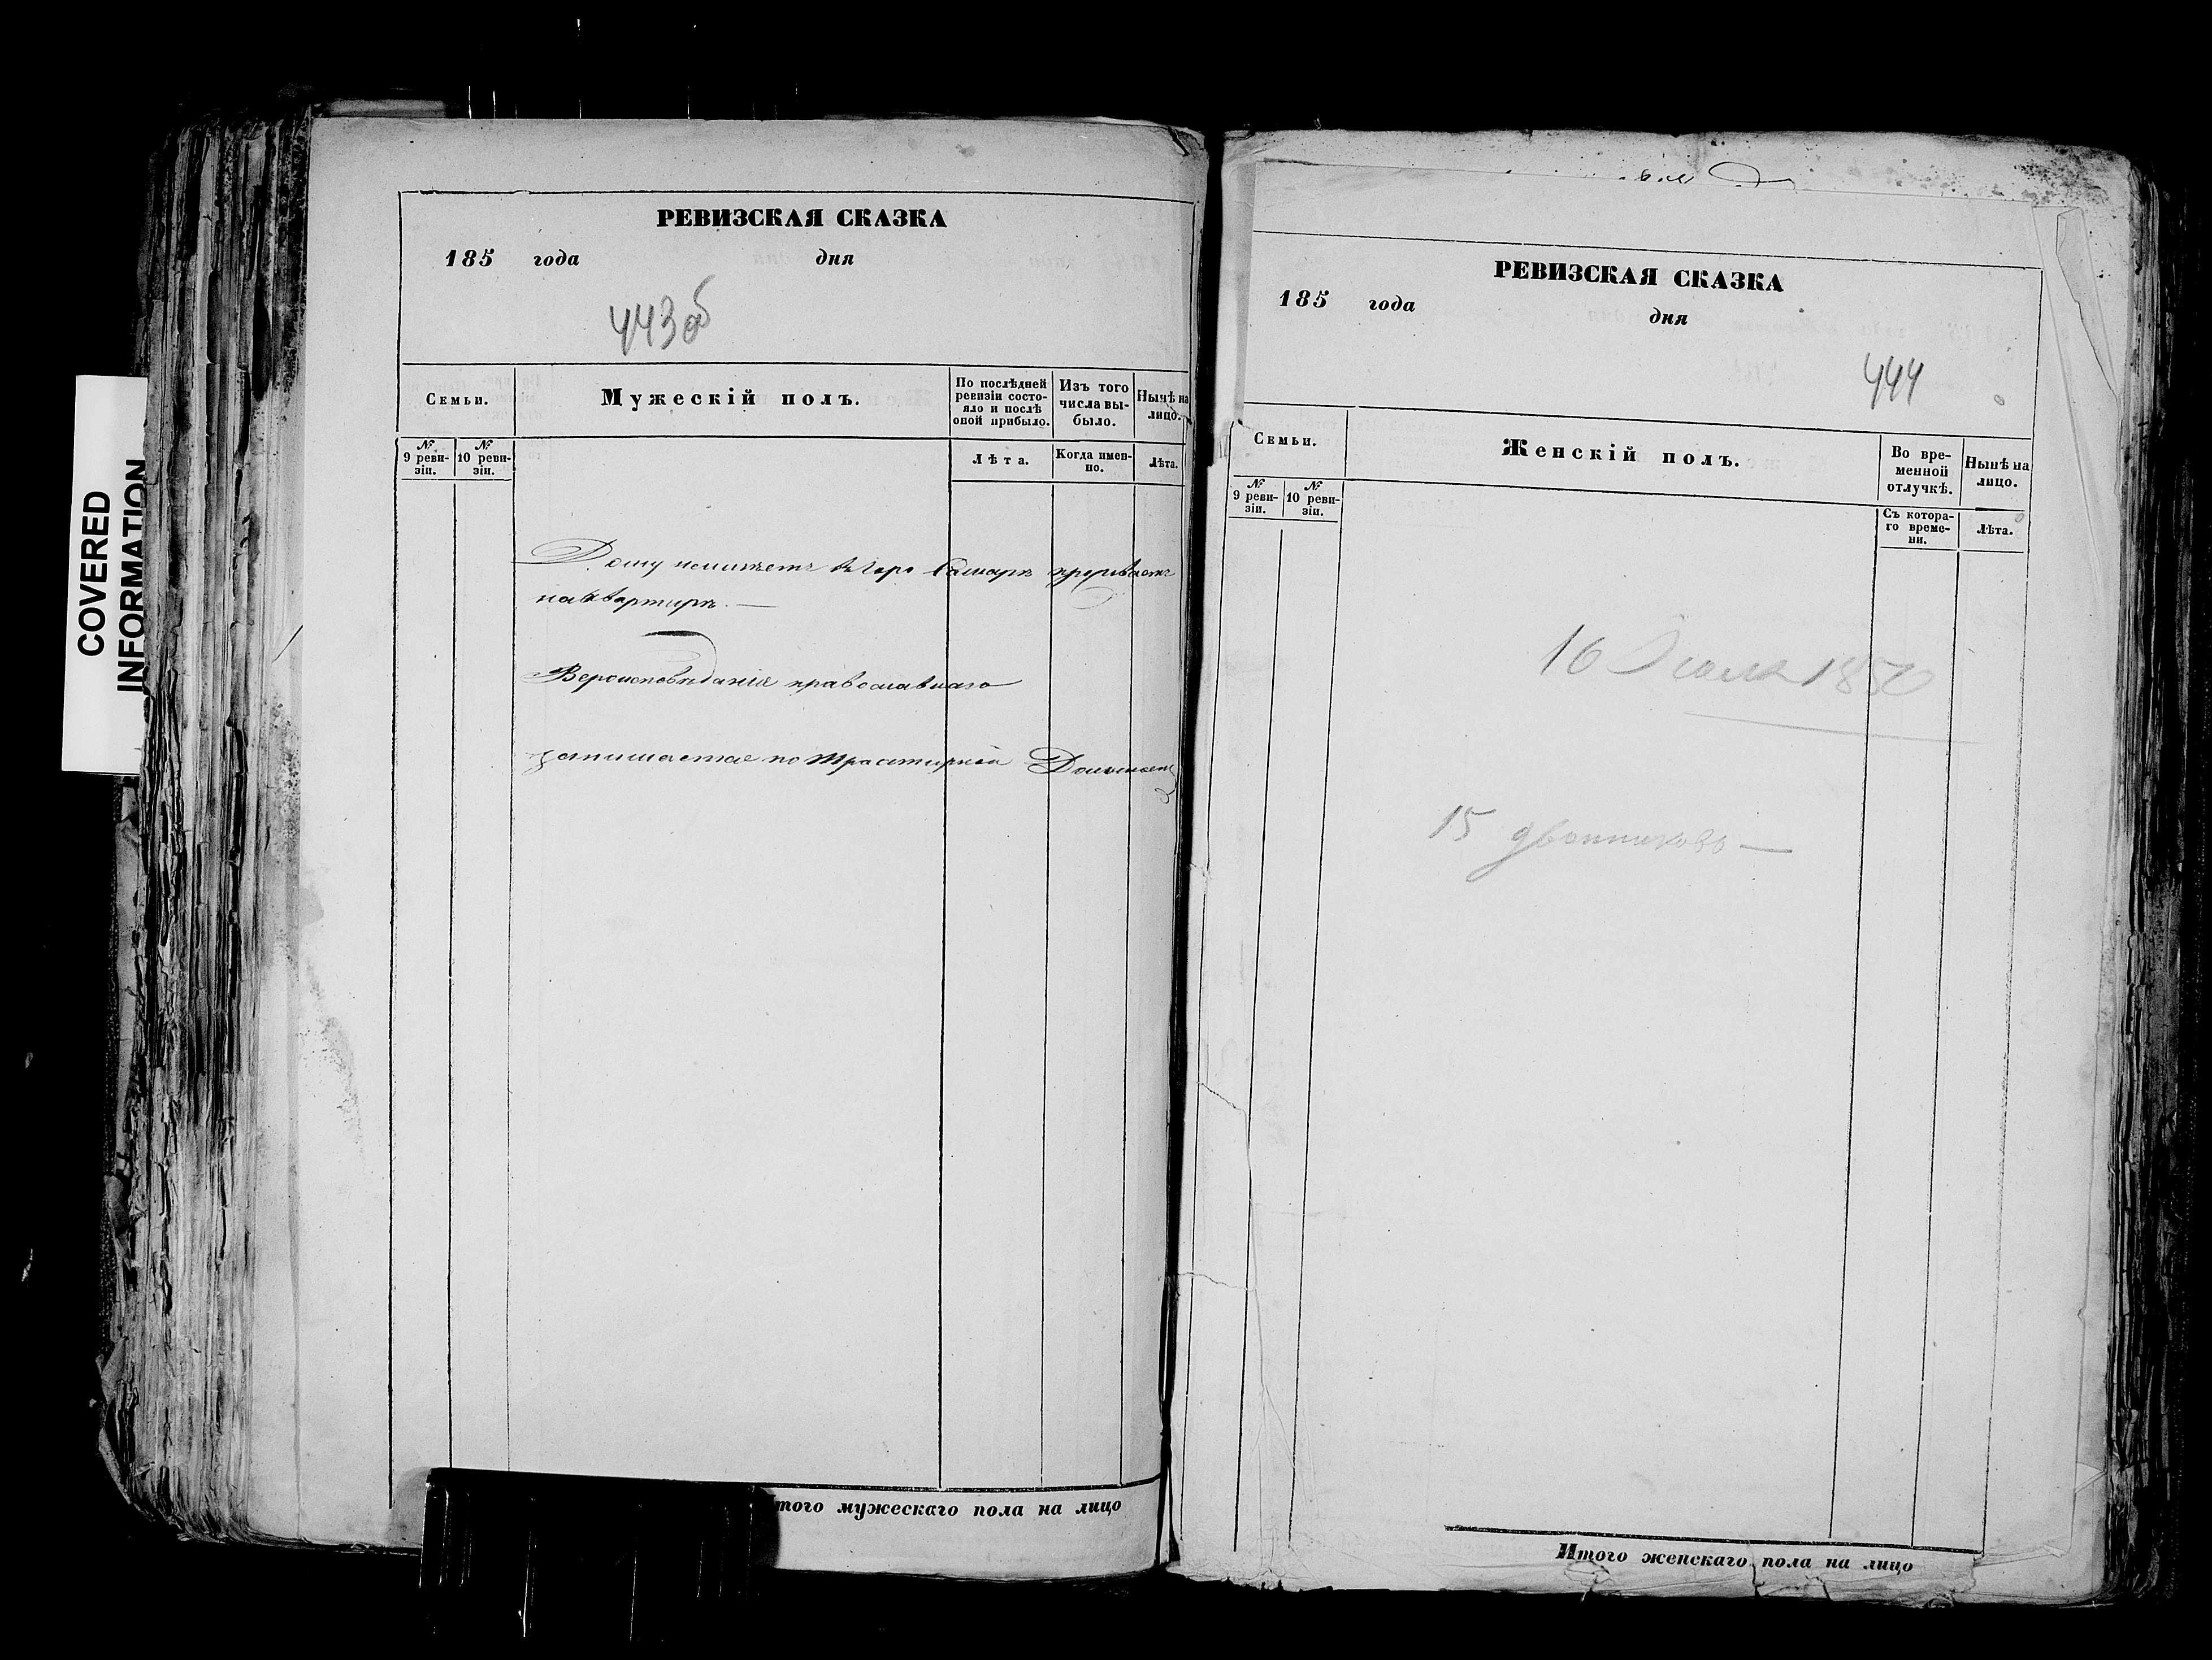 COVERED
INFORMATION
РЕВИЗСКАЯ СКАЗКА
185 года дня
443об
Семьи.
Мужескій полъ.
По послѣдней ревизіи состояло и послѣ оной прибыло.
Изъ того числа выбыло.
Нынѣ на лицо.
№ 9 ревизіи.
№ 10 ревизіи.
Лѣта.
Когда именно.
Лѣта.
Дому неимѣетъ въ Горо Самарѣ
на квартирѣ. —
Вероисповѣданія православнаго
занимается по трактирной
Итого мужескаго пола на лицо
РЕВИЗСКАЯ СКАЗКА
185 года дня
444
Семьи.
Женскій полъ.
Во временной отлучкѣ.
Нынѣ на лицо.
№ 9 ревизіи.
№ 10 ревизіи.
Съ котораго времени.
Лѣта.
16
15
Итого женскаго пола на лицо